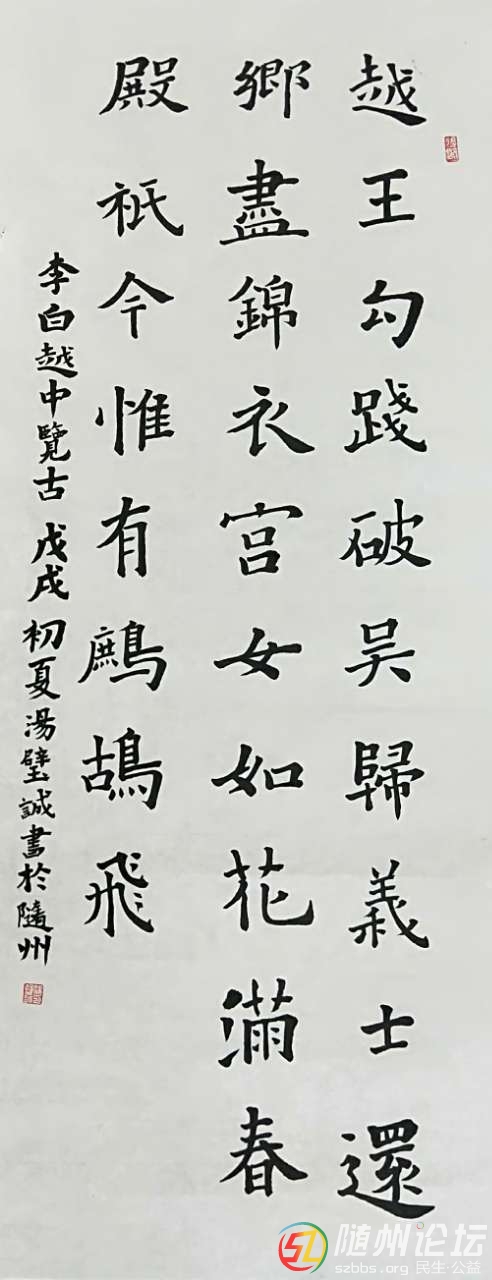 越王勾踐破吴歸義士還
鄉盡錦衣宫女如花滿春
殿祇今惟有鷓鴣飛
李白越中覽古 戊戌初夏湯璧誠書於隨州
随州论坛
szbbs.org 民生·公益